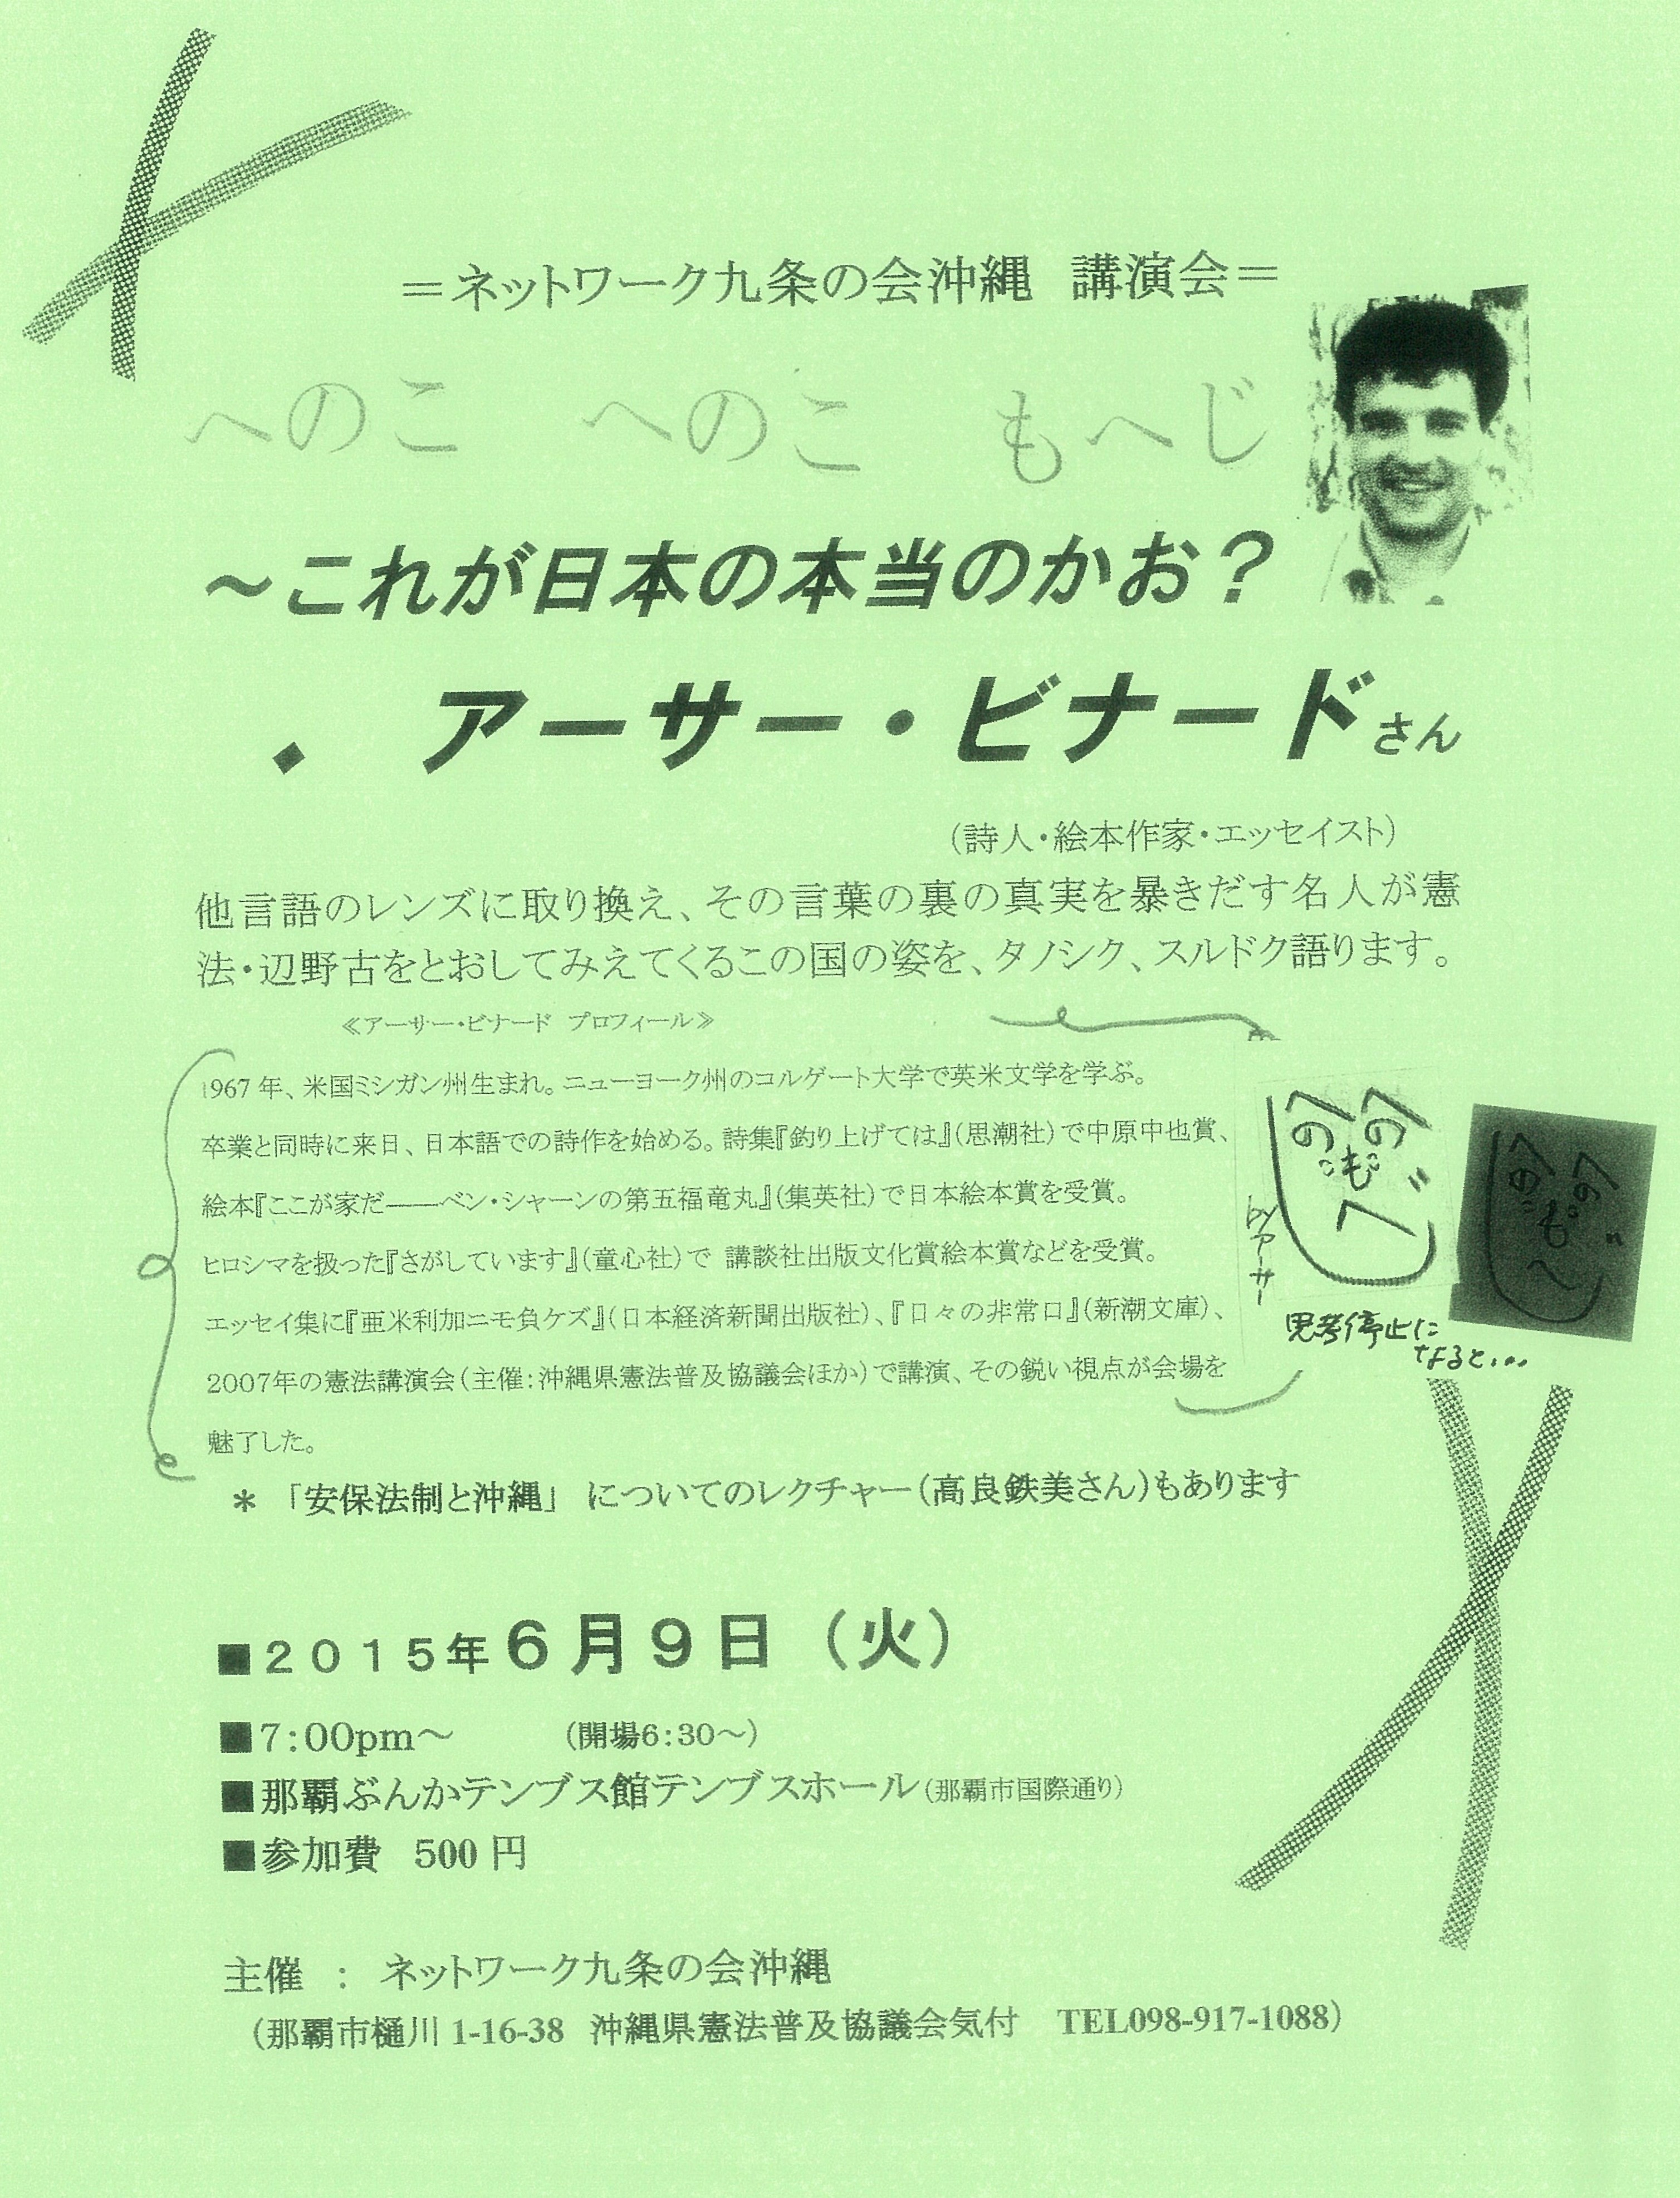 ＝ネットワーク九条の会沖縄　講演会＝
へのこ　へのこ　もへじ
～これが日本の本当のかお？
・　アーサー・ビナードさん
（詩人・絵本作家・エッセイスト）
他言語のレンズに取り換え、その言葉の裏の真実を暴きだす名人が憲
法・辺野古をとおしてみえてくるこの国の姿を、タノシク、スルドク語ります。
≪アーサー・ビナード　プロフィール≫
1967年、米国ミシガン州生まれ。ニューヨーク州のコルゲート大学で英米文学を学ぶ。
卒業と同時に来日、日本語での詩作を始める。詩集『釣り上げては』（思潮社）で中原中也賞、
絵本『ここが家だ――ベン・シャーンの第五福竜丸』（集英社）で日本絵本賞を受賞。
ヒロシマを扱った『さがしています』（童心社）で 講談社出版文化賞絵本賞などを受賞。
エッセイ集に『亜米利加ニモ負ケズ』（日本経済新聞出版社）、『日々の非常口』（新潮文庫）、
2007年の憲法講演会（主催：沖縄県憲法普及協議会ほか）で講演、その鋭い視点が会場を
魅了した。
へのこ へのこ もへじ
byアーサー
へのこ へのこ もへ
思考停止に
なると...
＊　「安保法制と沖縄」　についてのレクチャー（高良鉄美さん）もあります
■２０１５年６月９日（火）
■7：00pm～　　（開場6：30～）
■那覇ぶんかテンブス館テンブスホール（那覇市国際通り）
■参加費　500 円
主催　：　ネットワーク九条の会沖縄
（那覇市樋川 1-16-38　沖縄県憲法普及協議会気付　TEL098-917-1088）